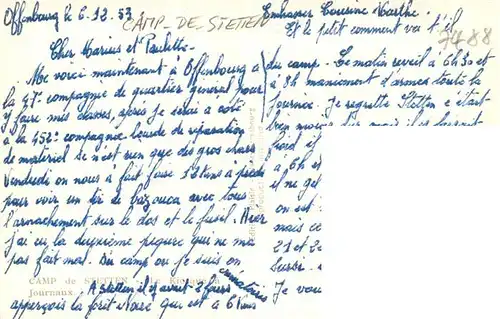 Offenbourg le 6.12.53
CAMP-DE-STETTEN
Embrasser Cousine Marthe.
Et le petit comment va t'il
9488
Cher Marius et Paulette.
Me voici maintenant à Offenbourg a
la 47e compagnie de quartier general pour
y faire mes classes, après je serai a coté
a la 452e compagnie lourde de reparation
de materiel se n'est rien que des gros chars
Vendredi on nous a fait faire 12 kms à pieds
pour voir un tir de bazouca avec tous
l'arnachement sur le dos et le fusil. Hier
j'ai eu la deuxième piqure qui ne ma
pas fait mal. Au camp ou je suis on
CAMP de STETTEN
Journaux
A stetten il y avait 2 foyers
aperçois la forêt Noire qui est a 6 kms
du camp. Le matin reveil a 6h30 et
a 8h maniment d'armes toute la
journee. Je regrette Stetten c etait
bien
froid
a 6h
il ne
on est
mais
21 et
aussi.
Je vou